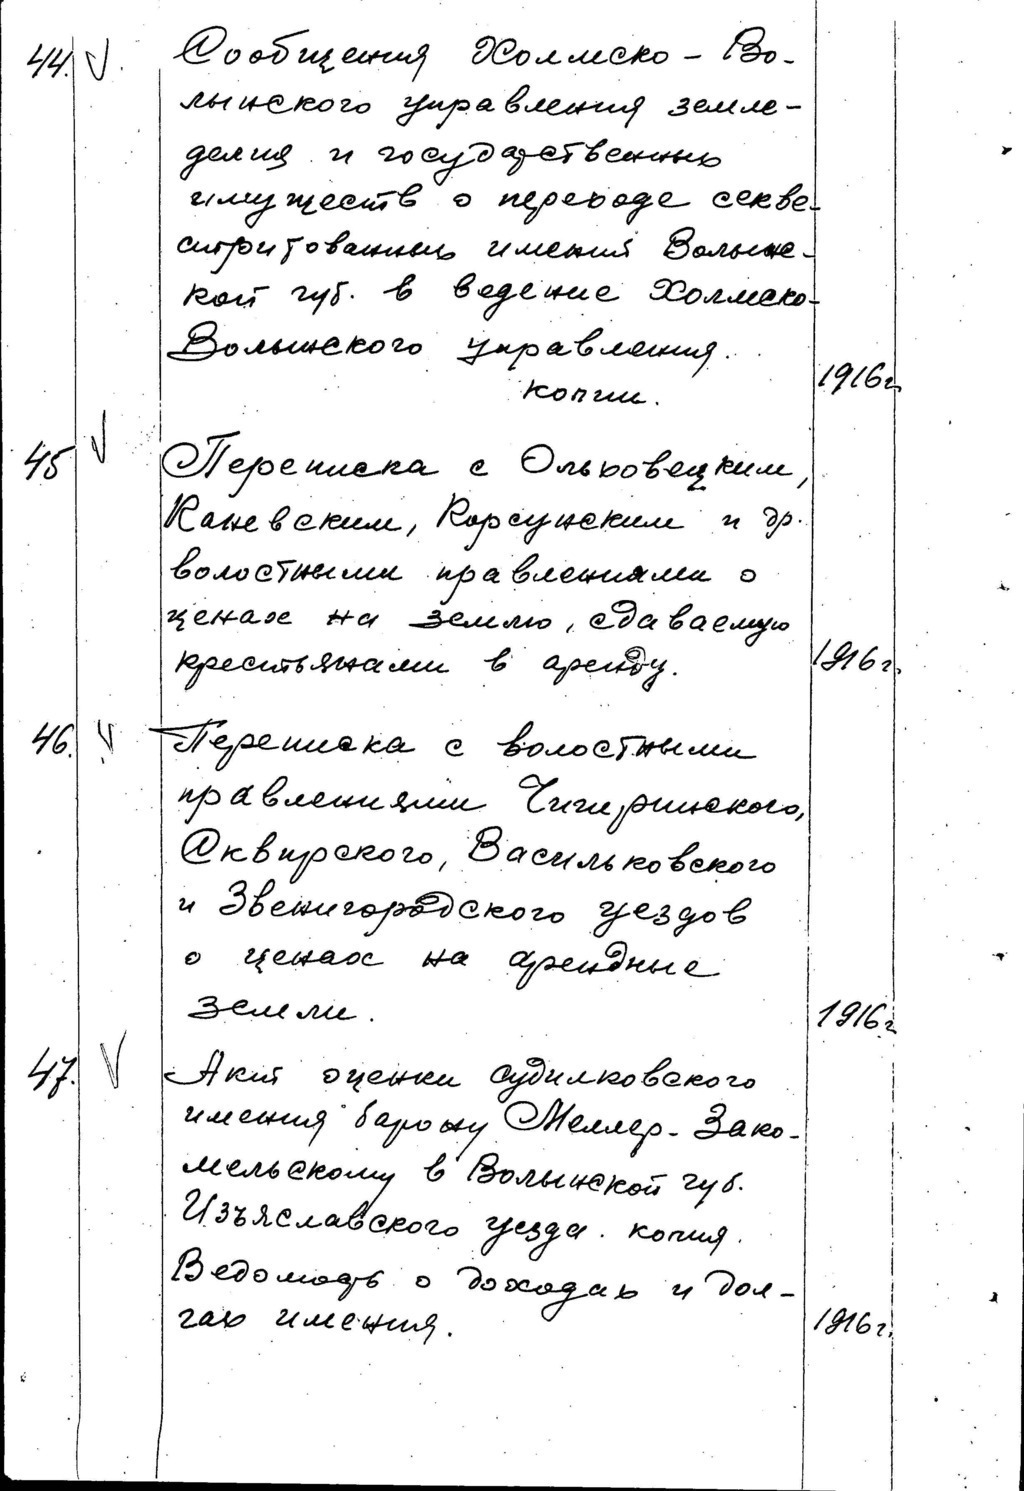 44. V. Сообщения Холмско - Во-
лынского управления земле-
делия и государственных
имуществ о переходе секве-
стритованных имений Волынс-
кой губ. в ведение Холмско-
Волынского управления.
копии. 1916г.
45 V Переписка с Ольховецким,
Каневским, Корсунским и др.
волостными правлениями о
ценах на землю, сдаваемую
крестьянами в аренду. 1916г.
46. V Переписка с волостными
правлениями Чигиринского,
Сквирского, Васильковского
и Звенигородского уездов
о ценах на арендные
земли. 1916г
47. V Акт оценки Судилковского
имения барону Меллер- Зако-
мельскому в Волынской губ.
Изъяславского уезда. копия.
Ведомость о доходах и дол-
гах имения. 1916г.